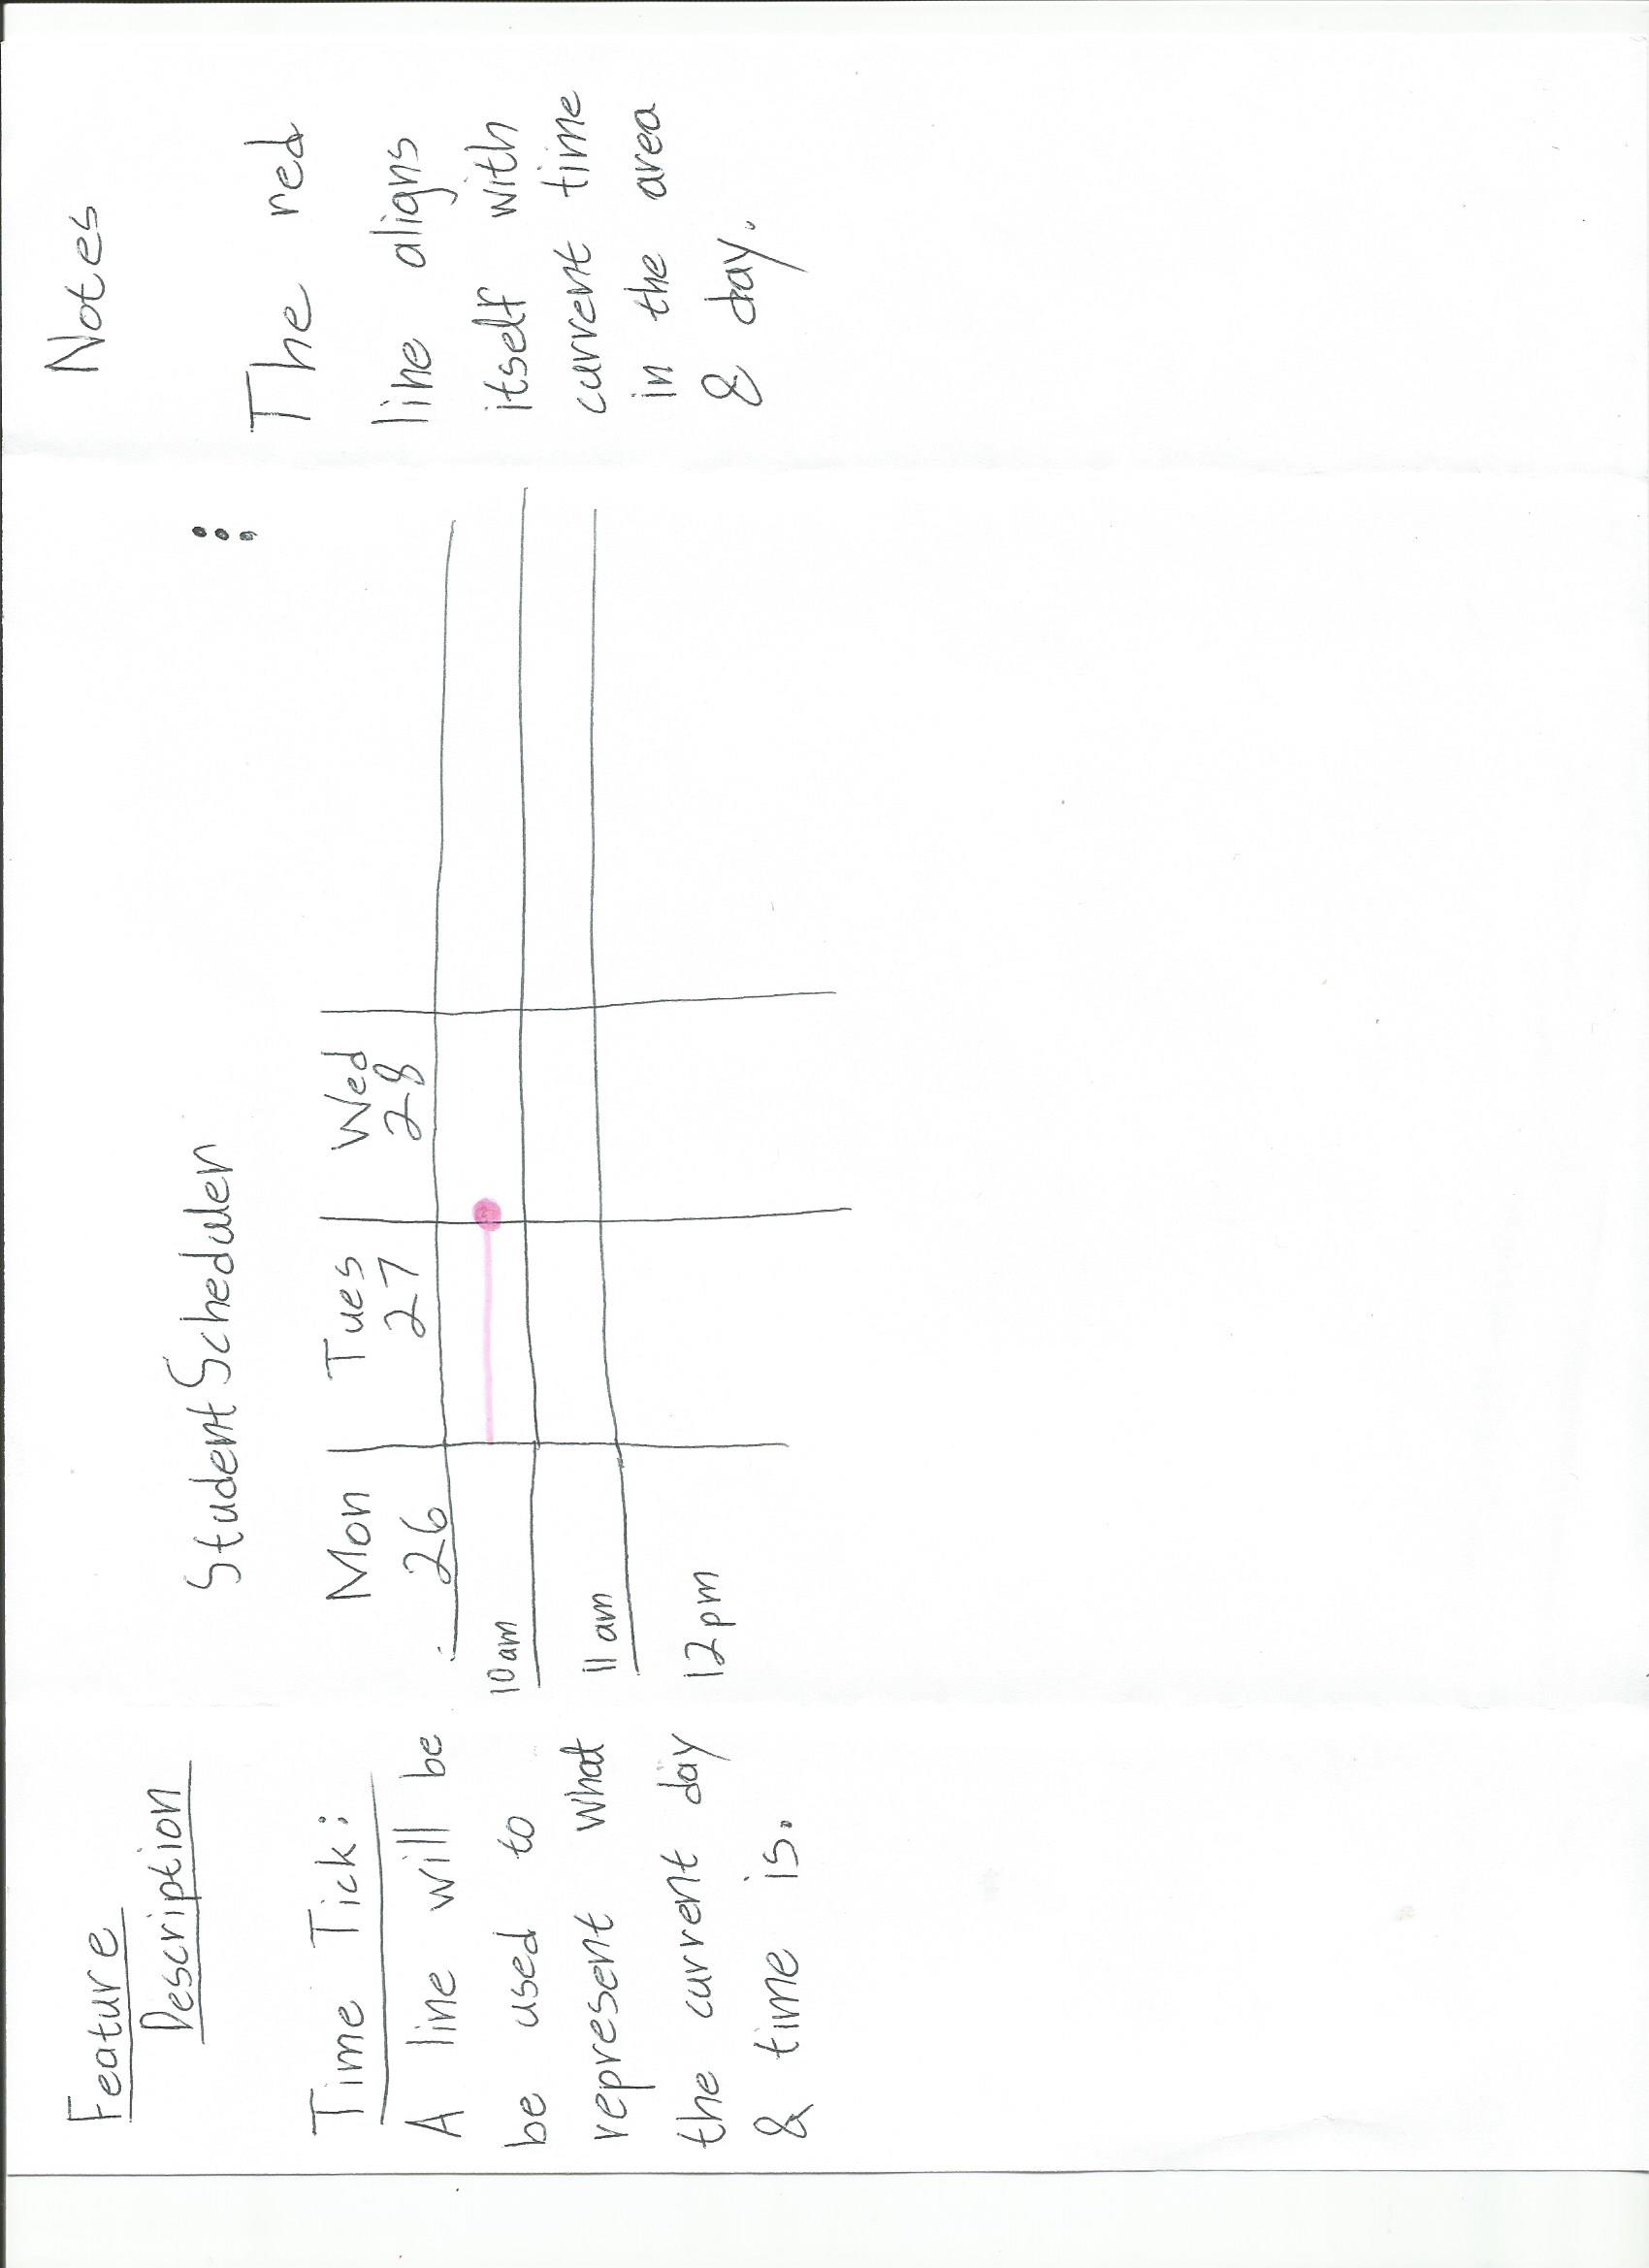 Feature
Description
Time Tick:
A line will be
be used to
represent what
the current day
& time is.
Student Scheduler
Mon Tues Wed
26 27 28
10am
11am
12pm
Notes
The red
line aligns
itself with
current time
in the area
& day.